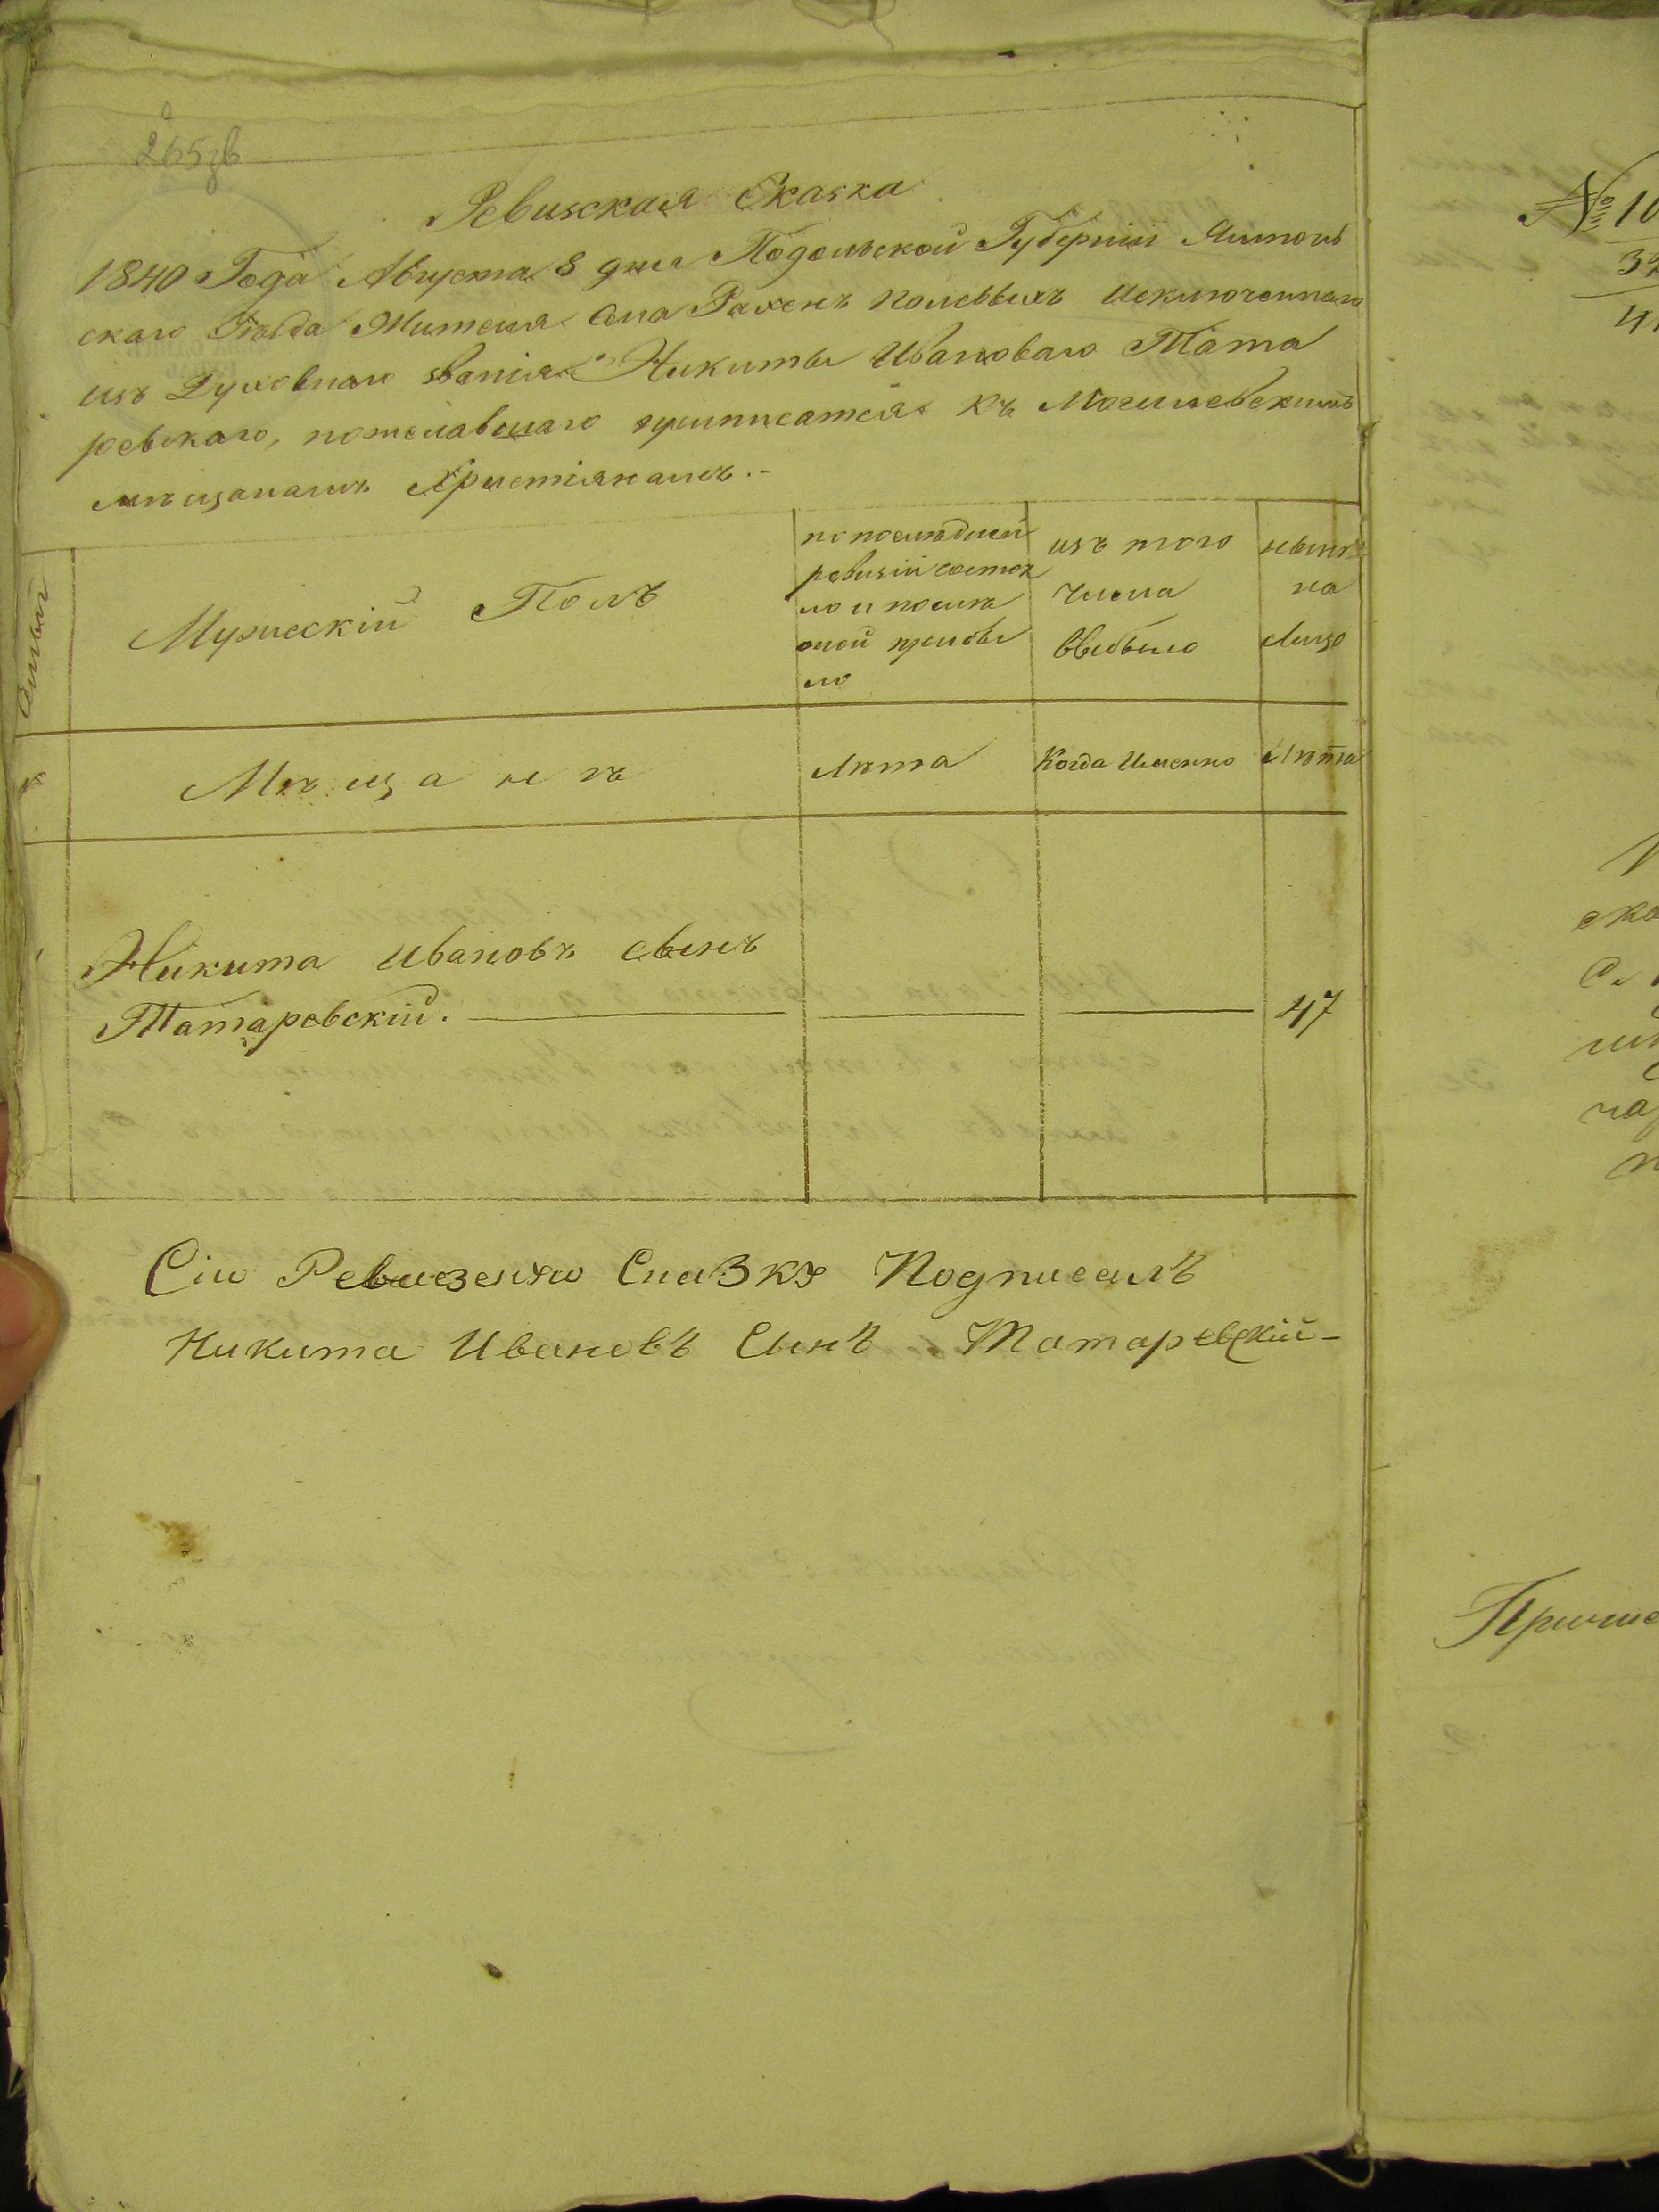 265зв
Ревизская Сказка
1840 Года Августа 8 дня Подольской Губернии Ямполь
скаго Уѣзда Жителя Села Рахенъ Полевыхъ Исключеннаго
изъ Духовнаго звания Никиты Ивановаго Тата
ревскаго, пожелавшаго приписатся къ Могилевскимъ
мѣщанамъ Христіянамъ.-
Семьи
Мужескій Полъ
по послѣдней
ревизіи состоя
ло и послѣ
оной прибы
ло
изъ того
числа
выбыло
нынѣ
на
лицо
Мѣщанѣ
Лѣта
Когда Именно
Лѣта
Никита Ивановъ сынъ
Татаревскій.
47
Сію Ревизскую Сказку Подписалъ
Никита Ивановъ Сынъ Татаревскій-
№ 10